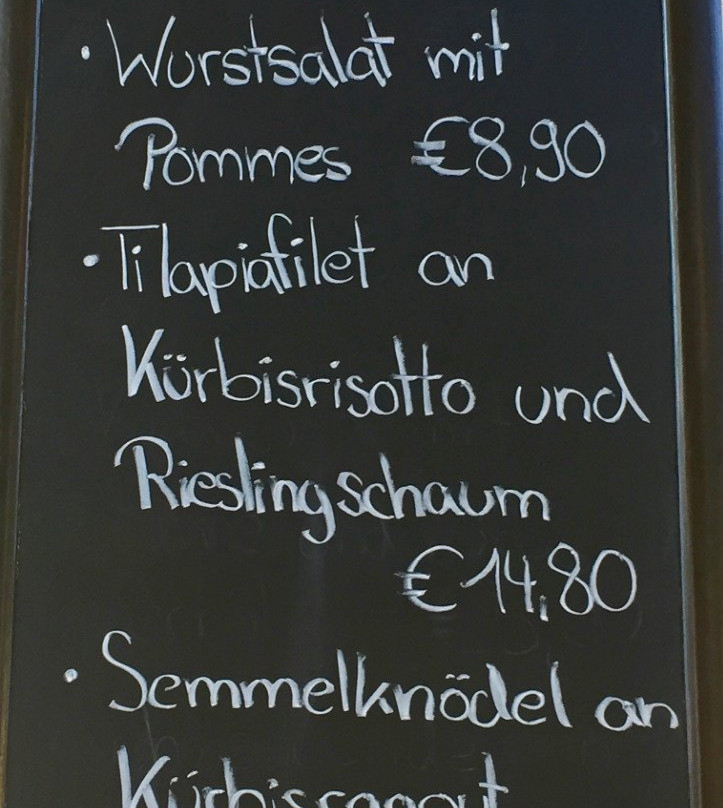 · Wurstsalat mit
Pommes €8,90
· Tilapiafilet an
Kürbisrisotto und
Rieslingschaum
€14,80
· Semmelknödel an
Kürbisragout